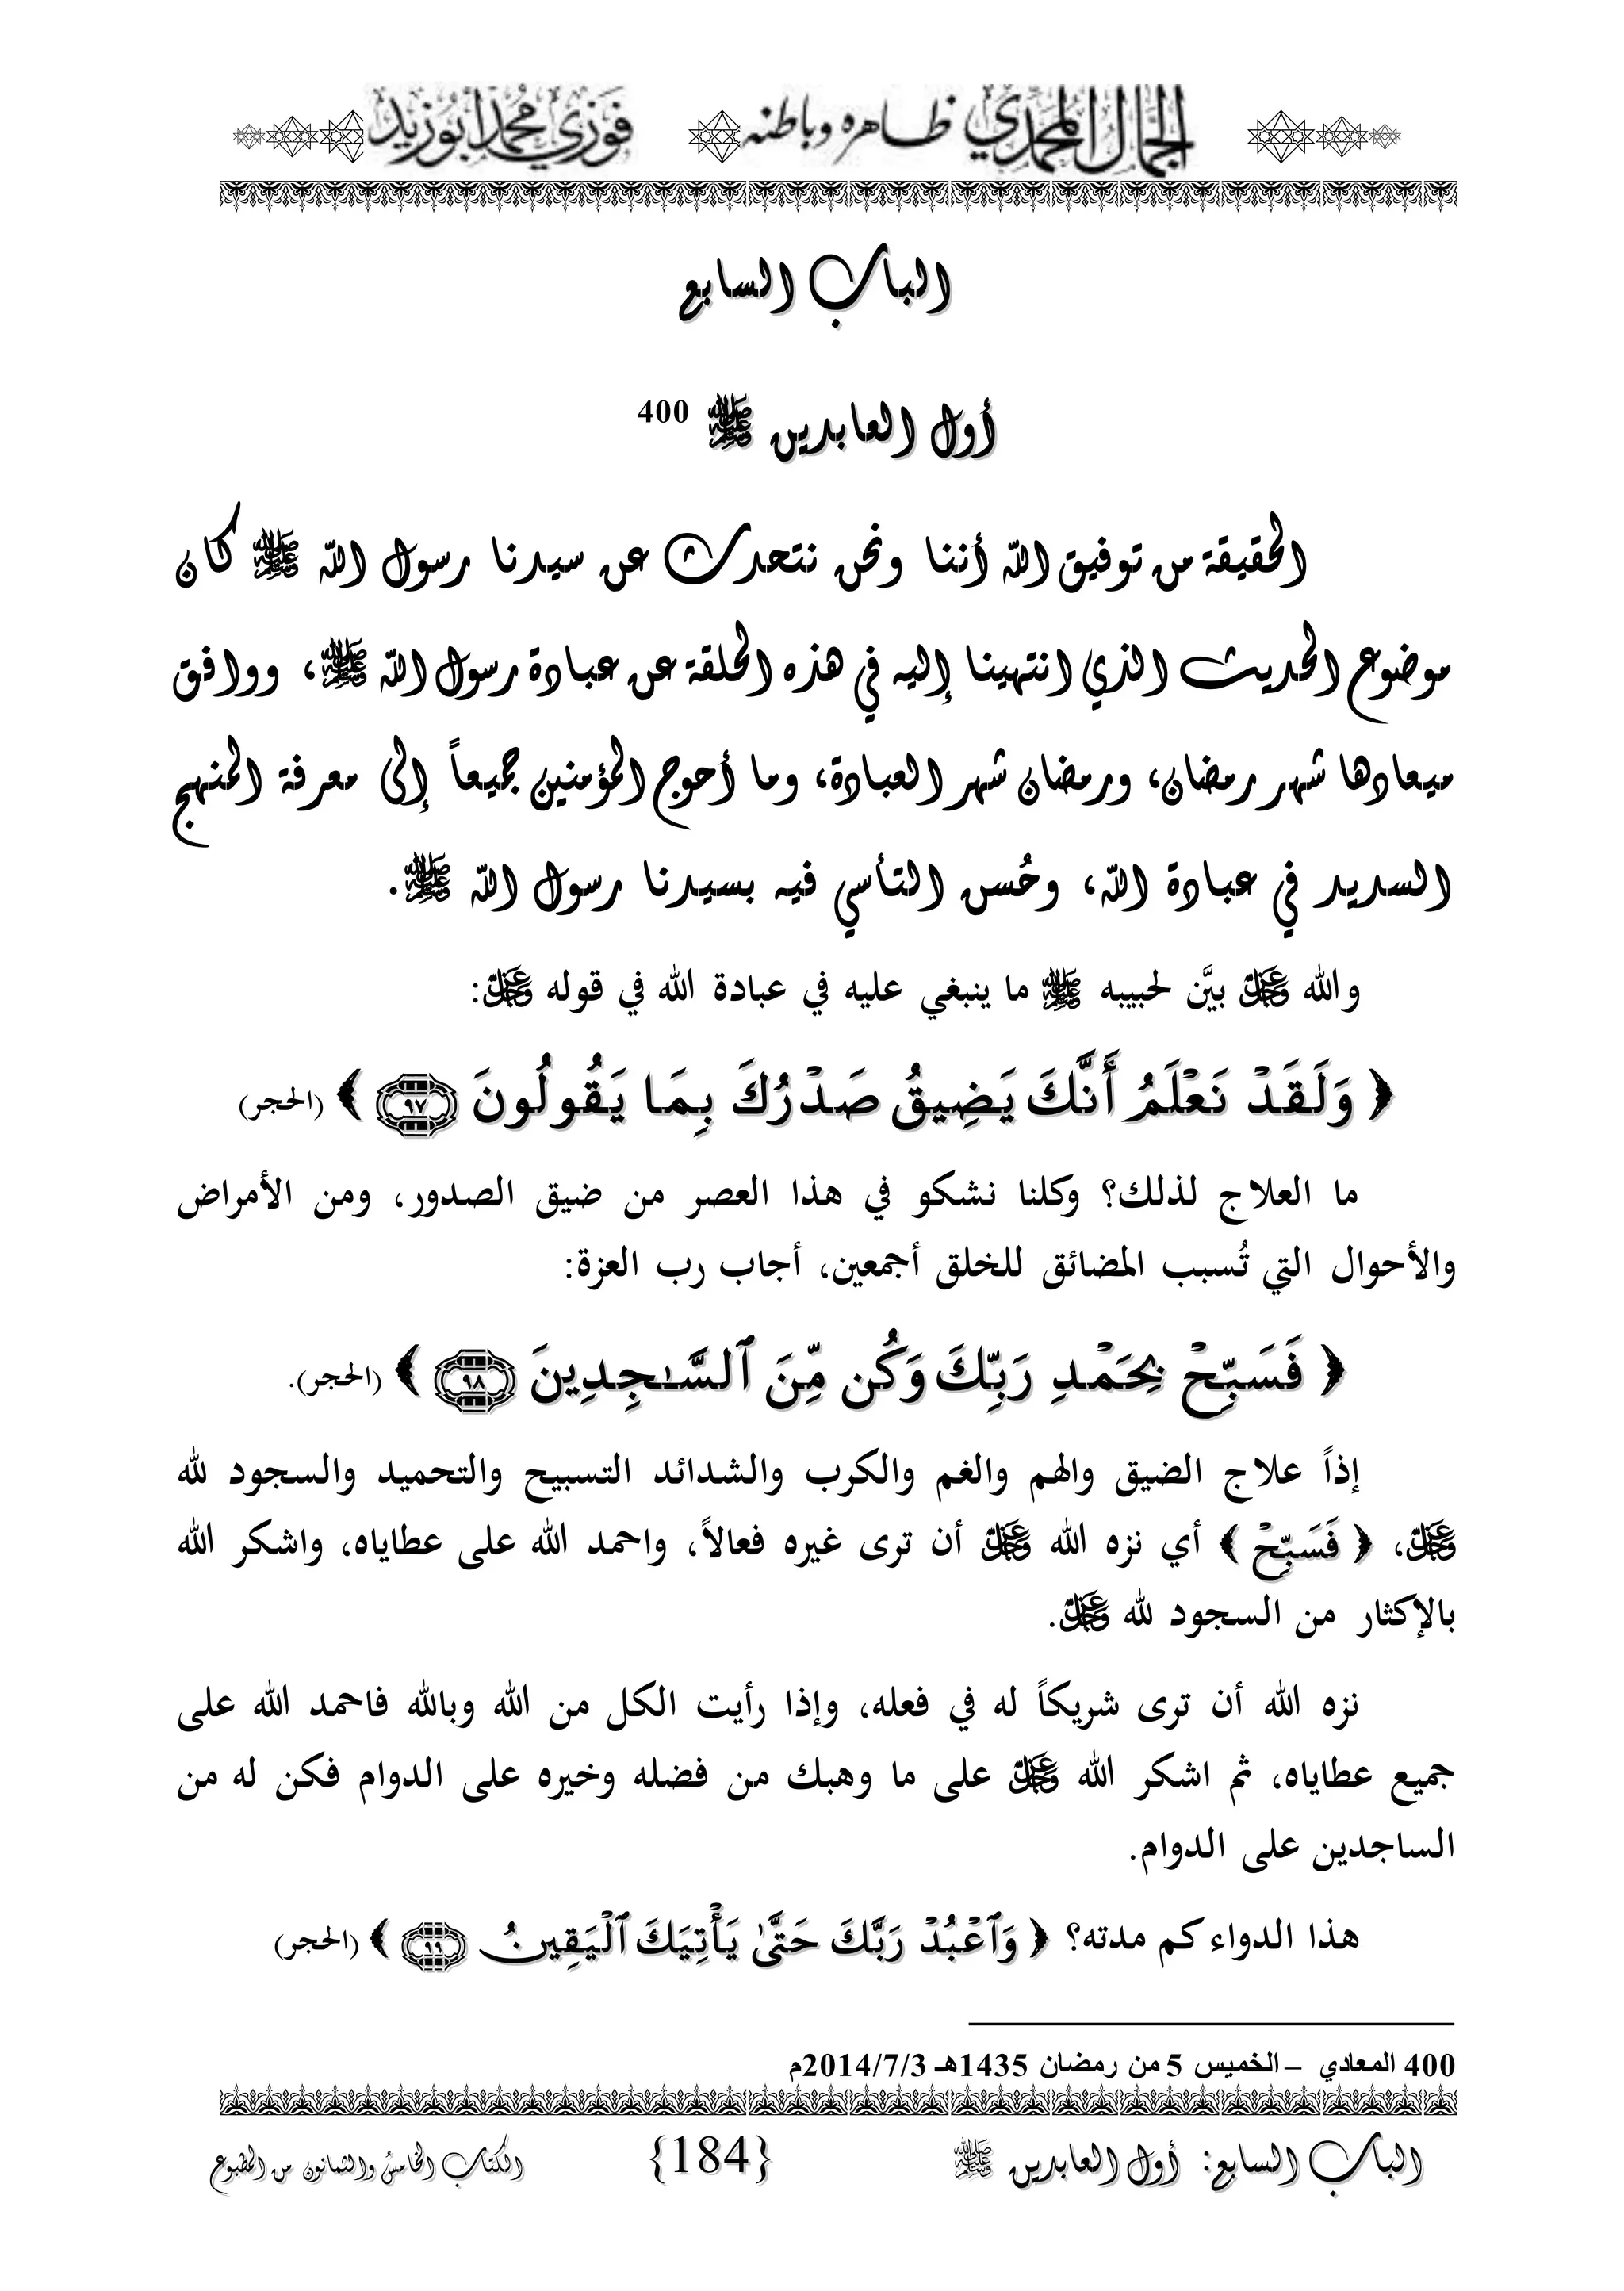 الجمال المحمدي ظاهره وباطنه فوزي محمد أبوزيد
الباب السابع
أول العابدين ﷺ 400
الحقيقة من توفيق الله أننا ونحن نتحدث عن سيدنا رسول الله ﷺ كان
موضوع الحديث الذي انتهينا إليه في هذه الحلقة عن عبادة رسول الله ﷺ، ووافق
ميعادها شهر رمضان، ورمضان شهر العبادة، وما أحوج المؤمنين جميعاً إلى معرفة المنهج
السديد في عبادة الله، وحُسن التأسي فيه بسيدنا رسول الله ﷺ.
والله عَزَّ وَجَلَّ بيَّن لحبيبه ﷺ ما ينبغي عليه في عبادة الله في قوله عَزَّ وَجَلَّ:
﴿ وَلَقَدْ نَعْلَمُ أَنَّكَ يَضِيقُ صَدْرُكَ بِمَا يَقُولُونَ ٩٧ ﴾ (الحجر)
ما العلاج لذلك؟ وكلنا نشكو في هذا العصر من ضيق الصدور، ومن الأمراض
والأحوال التي تُسبب المضائق للخلق أجمعين، أجاب رب العزة:
﴿ فَسَبِّحْ بِحَمْدِ رَبِّكَ وَكُن مِّنَ ٱلسَّـٰجِدِينَ ٩٨ ﴾ (الحجر).
إذاً علاج الضيق والهم والغم والكرب والشدائد التسبيح والتحميد والسجود لله
عَزَّ وَجَلَّ، ﴿ فَسَبِّحْ ﴾ أي نزه الله عَزَّ وَجَلَّ أن ترى غيره فعالاً، واحمد الله على عطاياه، واشكر الله
بالإكثار من السجود لله عَزَّ وَجَلَّ.
نزه الله أن ترى شريكاً له في فعله، وإذا رأيت الكل من الله وبالله فاحمد الله على
جميع عطاياه، ثم اشكر الله عَزَّ وَجَلَّ على ما وهبك من فضله وخيره على الدوام فكن له من
الساجدين على الدوام.
هذا الدواء كم مدته؟ ﴿ وَٱعْبُدْ رَبَّكَ حَتَّىٰ يَأْتِيَكَ ٱلْيَقِينُ ٩٩ ﴾ (الحجر)
400 المعادي – الخميس 5 من رمضان 1435هـ 2014/7/3م
الباب السابع: أول العابدين ﷺ {184} الكتاب الخامس والثمانون من المطبوع